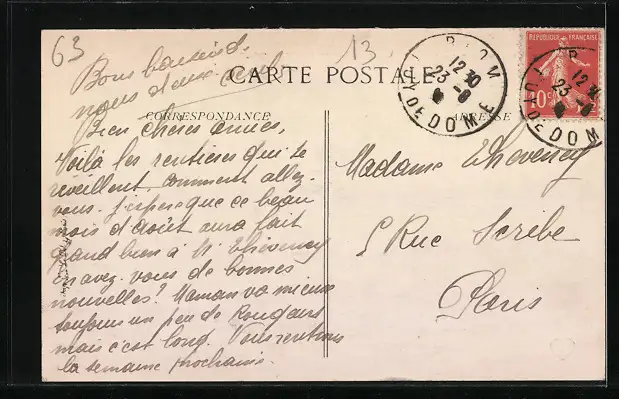 63
13
Bons baisers de
nous deux
CARTE POSTALE
CORRESPONDANCE
ADRESSE
RIOM
12
23 -8
PUY DE DOME
REPUBLIQUE FRANÇAISE
10c
12
23 -8
PUY DE DOME
Bien chères amies,
Voilà les rentières qui se
réveillent. Comment allez-
vous. J'espère que ce beau
mois d'août aura fait
grand bien à Mr Théveney
en avez-vous de bonnes
nouvelles? Maman va mieux
toujours un peu de
mais c'est long. Nous rentrons
la semaine prochaine.
Madame Théveney
5 Rue Scribe
Paris